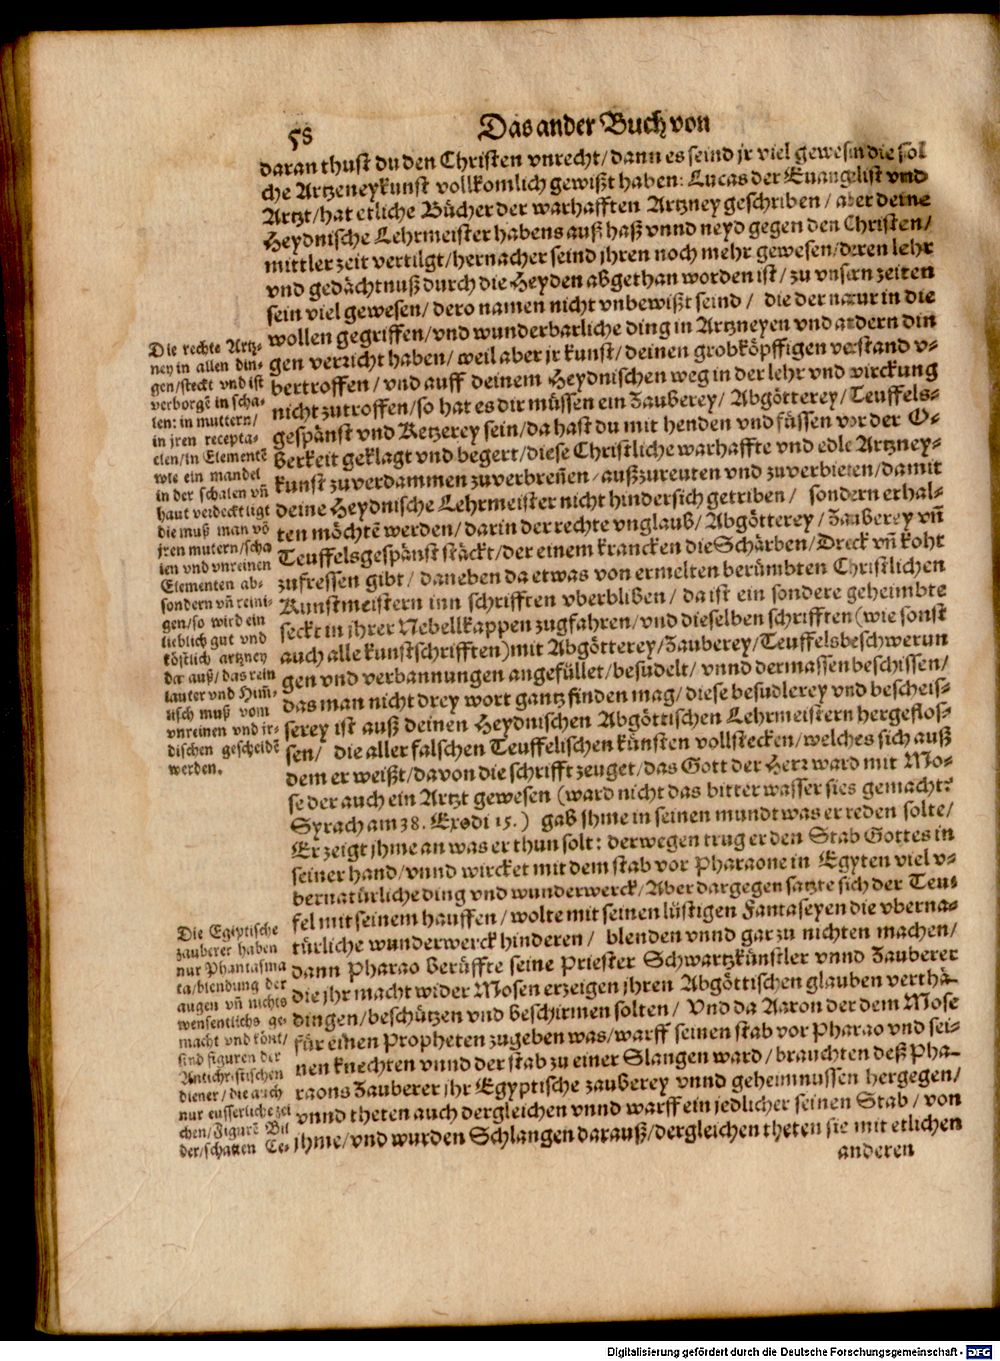 58
Das ander Buch von
daran thust du den Christen vnrecht/ dann es seind jr viel gewesen die sol
che Artzeneykunst vollkomlich gewißt haben: Lucas der Euangelist vnd
Artzt/ hat etliche Bücher der warhafften Artzney geschriben / aber deine
Heydnische Lehrmeister habens auß haß vnnd neyd gegen den Christen/
mittler zeit vertilgt/ hernacher seind jhren noch mehr gewesen/ deren lehr
vnd gedächtnuß durch die Heyden abgethan worden ist/ zu vnsern zeiten
sein viel gewesen/ dero namen nicht vnbewißt seind / die der natur in die
wollen gegriffen/ vnd wunderbarliche ding in Artzneyen vnd andern din
gen verricht haben/ weil aber jr kunst/ deinen grobköpffigen verstand v-
bertroffen/ vnd auff deinem Heydnischen weg in der lehr vnd wirckung
nicht zutroffen/ so hat es dir müssen ein Zauberey/ Abgötterey/ Teuffels-
gespänst vnd Ketzerey sein/ da hast du mit henden vnd füssen vor der O-
berkeit geklagt vnd begert/ diese Christliche warhaffte vnd edle Artzney-
kunst zuverdammen zuverbreñen / außzureuten vnd zuverbieten/ damit
deine Heydnische Lehrmeister nicht hindersich getriben / sondern erhal-
ten möchtē werden/ darin der rechte vnglaub/ Abgötterey / Zauberey vñ
Teuffelsgespänst stäckt/ der einem krancken die Schärben/ Dreck vñ koht
zufressen gibt/ daneben da etwas von ermelten berümbten Christlichen
Kunstmeistern inn schrifften vberbliben/ da ist ein sondere geheimbte
seckt in jhrer Nebellkappen zugfahren/ vnd dieselben schrifften (wie sonst
auch alle kunstschrifften) mit Abgötterey/ Zauberey/ Teuffelsbeschwerun
gen vnd verbannungen angefüllet/ besudelt/ vnnd dermassen beschissen/
das man nicht drey wort gantz finden mag/ diese besudlerey vnd bescheis-
serey ist auß deinen Heydnischen Abgöttischen Lehrmeistern hergeflos-
sen/ die aller falschen Teuffelischen künsten vollstecken/ welches sich auß
dem erweißt/ davon die schrifft zeuget/ das Gott der Herr ward mit Mo-
se der auch ein Artzt gewesen (ward nicht das bitter wasser sies gemacht?
Syrach am 38. Exodi 15.) gab jhme in seinen mundt was er reden solte/
Er zeigt jhme an was er thun solt: derwegen trug er den Stab Gottes in
seiner hand/ vnnd wircket mit dem stab vor Pharaone in Egyten viel v-
bernatürliche ding vnd wunderwerck/ Aber dargegen satzte sich der Teu-
fel mit seinem hauffen/ wolte mit seinen lüstigen Fantaseyen die vberna-
türliche wunderwerck hinderen / blenden vnnd gar zu nichten machen/
dann Pharao berüffte seine Priester Schwartzkünstler vnnd Zauberer
die jhr macht wider Mosen erzeigen jhren Abgöttischen glauben verthä-
dingen/ beschützen vnd beschirmen solten/ Vnd da Aaron der dem Mose
für einen Propheten zugeben was/ warff seinen stab vor Pharao vnd sei-
nen knechten vnnd der stab zu einer Slangen ward/ brauchten deß Pha-
raons Zauberer jhr Egyptische zauberey vnnd geheimnussen hergegen/
vnnd theten auch dergleichen vnnd warff ein jedlicher seinen Stab/ von
jhme/ vnd wurden Schlangen darauß/ dergleichen theten sie mit etlichen
anderen
Die rechte Artz-
ney in allen din-
gen/ steckt vnd ist
verborgē in scha-
len: in muttern/
in jren recepta-
clen/ in Elementē
wie ein mandel
in der schalen vñ
haut verdeckt ligt
die muß man vō
jren mutern/ scha
len vnd vnreinen
Elementen ab-
sondern vñ reini-
gen/ so wird ein
lieblich gut vnd
köstlich artzney
dar auß/ das rein
lauter vnd Him-
lisch muß vom
vnreinen vnd jr-
dischen gescheidē
werden.
Die Egiptische
zauberer haben
nur Phantasma
ta/ blendung der
augen vñ nichts
wensentlichs ge-
macht vnd könt/
sind figuren der
Antichristischen
diener / die auch
nur eusserliche zei
chen/ Figurē Bil
der/ schatten Ce-
Digitalisierung gefördert durch die Deutsche Forschungsgemeinschaft - DFG